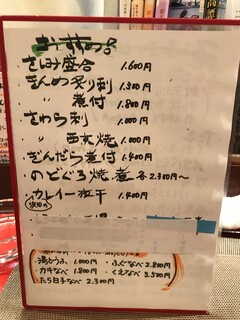 おすすめ品
さしみ盛合 1.600円
きんめ炙り刺 1.300円
〃 煮付 1.800円
さわら刺 1.000円
〃 西京焼 1.000円
ぎんだら煮付 1.400円
のどぐろ焼煮 各2.300円〜
カレイ一夜干 1.400円
・湯どうふ 1.000円 ・ふぐなべ 2.800円
・カキなべ 1.800円 ・くえなべ 3.500円
・たち白子なべ 2.300円